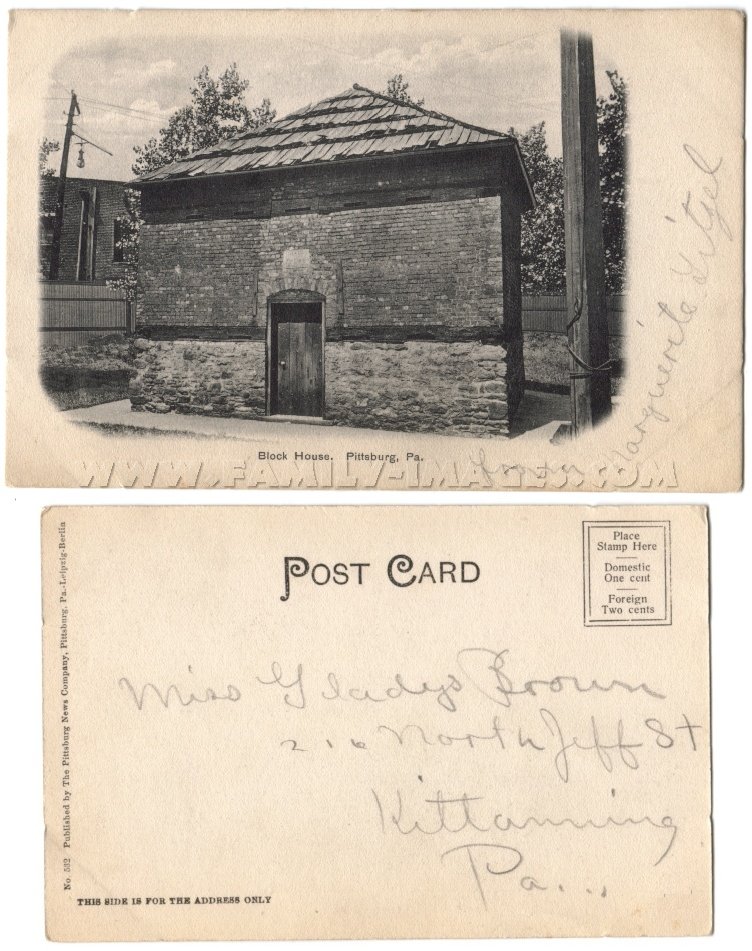 Block House. Pittsburg, Pa.
From Marguerite Litzel
WWW.FAMILY-IMAGES.COM
No. 532 Published by The Pittsburg News Company, Pittsburg, Pa.-Leipzig-Berlin
POST CARD
Place
Stamp Here
Domestic
One cent
Foreign
Two cents
Miss Gladys Brown
216 North Jeff St
Kittanning
Pa...
THIS SIDE IS FOR THE ADDRESS ONLY